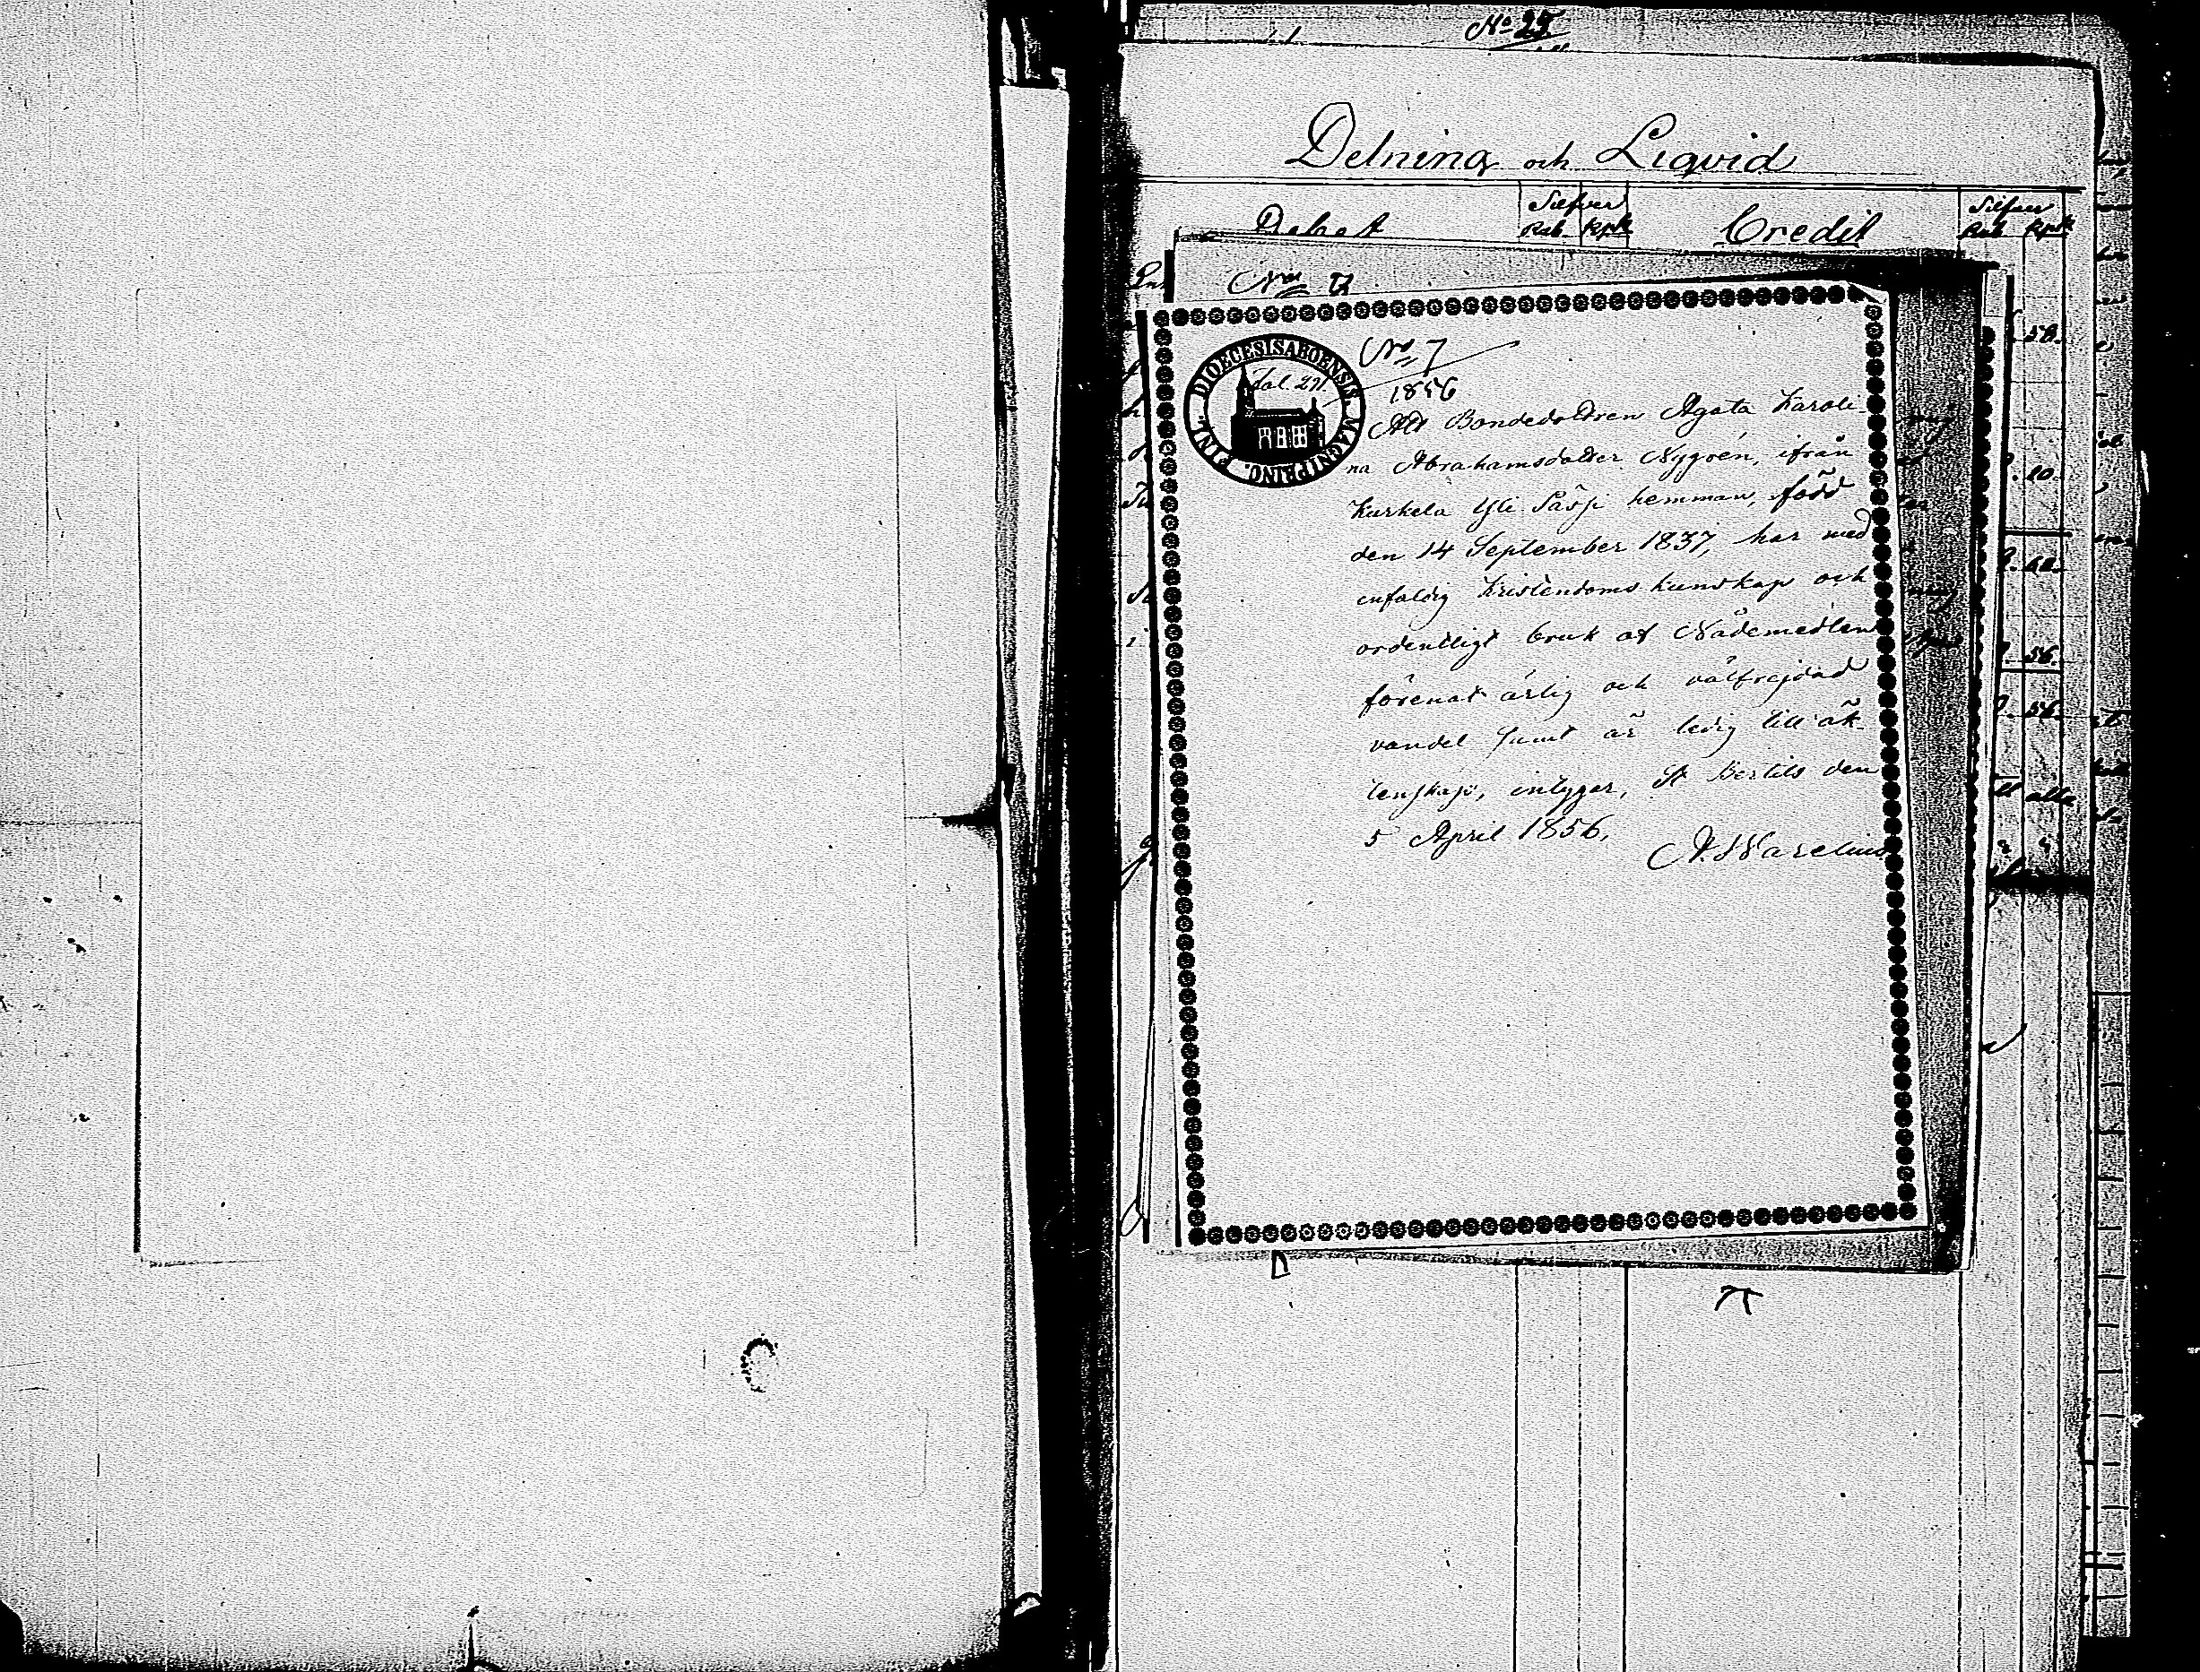 No 25
Delning och Liqvid
Debet
Silfver
Rub. Kopk
Credit
Silfver
Rub Kopk
No 7
DIOECESIS ABOENSIS. MAGNI PRINC. FINL.
fol. 291.
No 7
1856
Att Bondedottren Agata Karoli
na Abrahamsdotter Nygrén, ifrån
Kurkela Yli Päsji hemman, född
den 14 September 1837, har med
enfaldig Kristendoms kunskap och
ordentligt bruk af Nådemedlen
förenat ärlig och välfrejdad
vandel samt är ledig till äk-
tenskap, intygar, St Bertils den
5 April 1856,
A. Warelius
58.
10.
68.
56.
56.